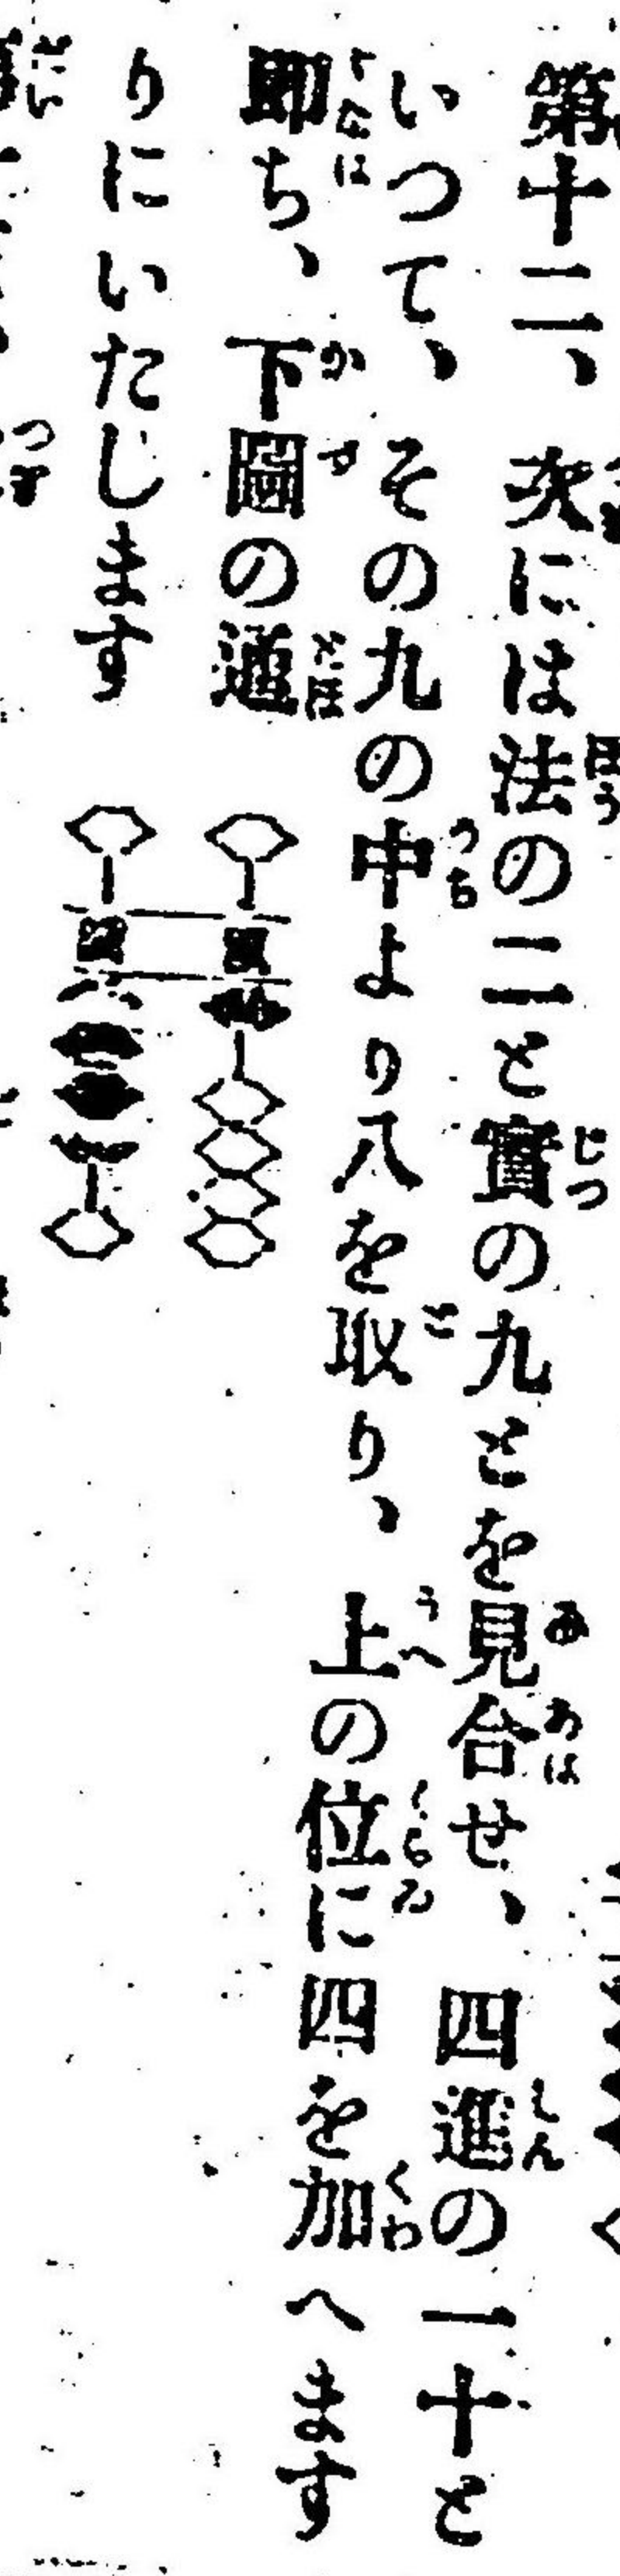 第十二、次には法の二と實の九とを見合せ、四進の一十と
いつて、その九の中より八を取り、上の位に四を加へます
即ち、下圖の通
りにいたします